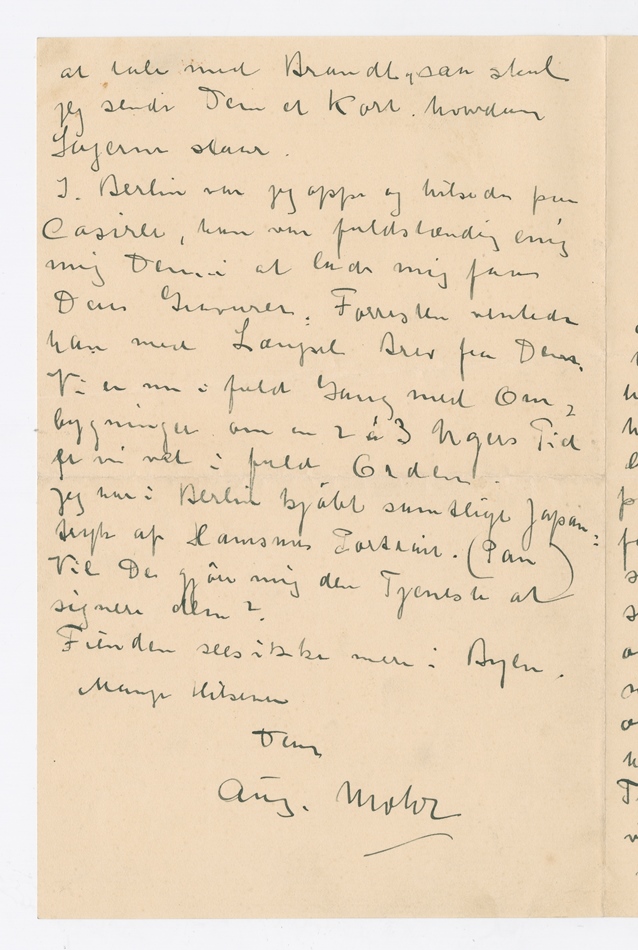 at tale med Brandt, saa skal
jeg sende Dem et Kort. hvordan
Sagerne staar.
I. Berlin var jeg oppe og hilsede paa
Casirer, han var fuldstændig enig
mig Dem i at lade mig faae
Deres Gravurer. Forresten ventede
han med Længsel Brev fra Dem.
Vi er nu i fuld Gang med Om-
bygningen om en 2 à 3 Ugers Tid
er vi vel i fuld Orden.
jeg har i Berlin kjøbt samtlige Japan-
tryk af Hamsuns Portrait. (Pan)
Vil De gjøre mig den Tjeneste at
signere dem?
Fienden sees ikke mere i Byen.
Mange Hilsener
Deres
Aug. Mohr